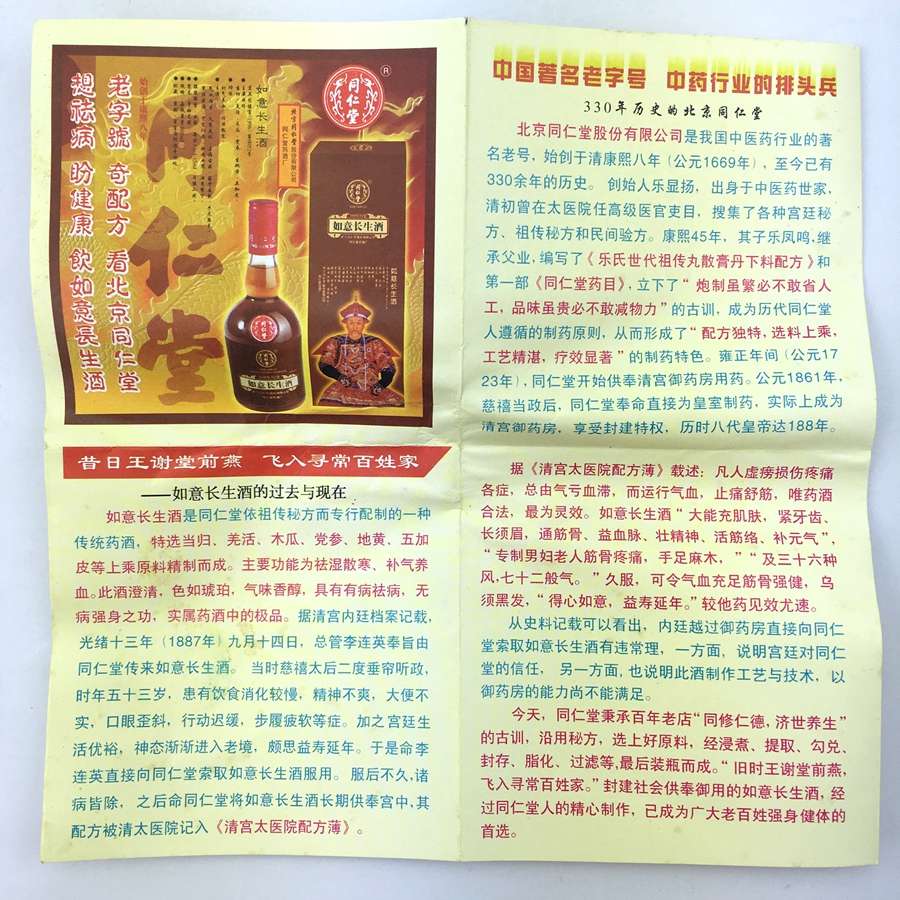 同仁堂
®
如意长生酒
同仁堂
如意长生酒
如意长生酒
同仁堂
如意长生酒
同仁堂
始创于康熙八年
老字號 奇配方 看北京同仁堂
想祛病 盼健康 飲如意長生酒
昔日王谢堂前燕 飞入寻常百姓家
——如意长生酒的过去与现在
如意长生酒是同仁堂依祖传秘方而专行配制的一种
传统药酒，特选当归、羌活、木瓜、党参、地黄、五加
皮等上乘原料精制而成。主要功能为祛湿散寒、补气养
血。此酒澄清，色如琥珀，气味香醇，具有有病祛病，无
病强身之功，实属药酒中的极品。据清宫内廷档案记载，
光绪十三年（1887年）九月十四日，总管李连英奉旨由
同仁堂传来如意长生酒。 当时慈禧太后二度垂帘听政，
时年五十三岁，患有饮食消化较慢，精神不爽，大便不
实，口眼歪斜，行动迟缓，步履疲软等症。加之宫廷生
活优裕，神态渐渐进入老境，颇思益寿延年。于是命李
连英直接向同仁堂索取如意长生酒服用。 服后不久,诸
病皆除， 之后命同仁堂将如意长生酒长期供奉宫中,其
配方被清太医院记入《清宫太医院配方薄》。
中国著名老字号 中药行业的排头兵
330年历史的北京同仁堂
北京同仁堂股份有限公司是我国中医药行业的著
名老号，始创于清康熙八年（公元1669年），至今已有
330余年的历史。 创始人乐显扬，出身于中医药世家，
清初曾在太医院任高级医官吏目，搜集了各种宫廷秘
方、祖传秘方和民间验方。康熙45年，其子乐凤鸣,继
承父业，编写了《乐氏世代祖传丸散膏丹下料配方》和
第一部《同仁堂药目》，立下了“ 炮制虽繁必不敢省人
工，品味虽贵必不敢减物力”的古训，成为历代同仁堂
人遵循的制药原则，从而形成了“ 配方独特，选料上乘，
工艺精湛，疗效显著”的制药特色。雍正年间（公元17
23年），同仁堂开始供奉清宫御药房用药。公元1861年，
慈禧当政后，同仁堂奉命直接为皇室制药，实际上成为
清宫御药房，享受封建特权，历时八代皇帝达188年。
据《清宫太医院配方薄》载述：凡人虚痨损伤疼痛
各症，总由气亏血滞，而运行气血，止痛舒筋，唯药酒
合法，最为灵效。如意长生酒“ 大能充肌肤，紧牙齿、
长须眉，通筋骨、益血脉、壮精神、活筋络、补元气”，
“ 专制男妇老人筋骨疼痛，手足麻木，”“及三十六种
风,七十二般气。”久服，可令气血充足筋骨强健，乌
须黑发，“ 得心如意，益寿延年。”较他药见效尤速。
从史料记载可以看出，内廷越过御药房直接向同仁
堂索取如意长生酒有违常理，一方面，说明宫廷对同仁
堂的信任， 另一方面,也说明此酒制作工艺与技术，以
御药房的能力尚不能满足。
今天，同仁堂秉承百年老店“同修仁德，济世养生”
的古训，沿用秘方，选上好原料，经浸煮、提取、勾兑、
封存、脂化、过滤等,最后装瓶而成。“ 旧时王谢堂前燕，
飞入寻常百姓家。”封建社会供奉御用的如意长生酒，经
过同仁堂人的精心制作，已成为广大老百姓强身健体的
首选。